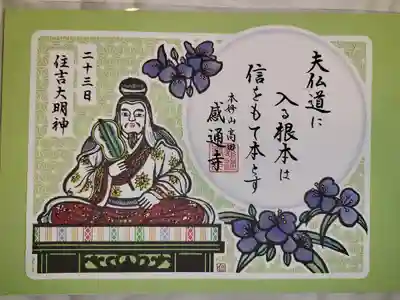 夫仏道に
入る根本は
信をもて本とす
本妙山 高田
感通寺
二十三日
住吉大明神